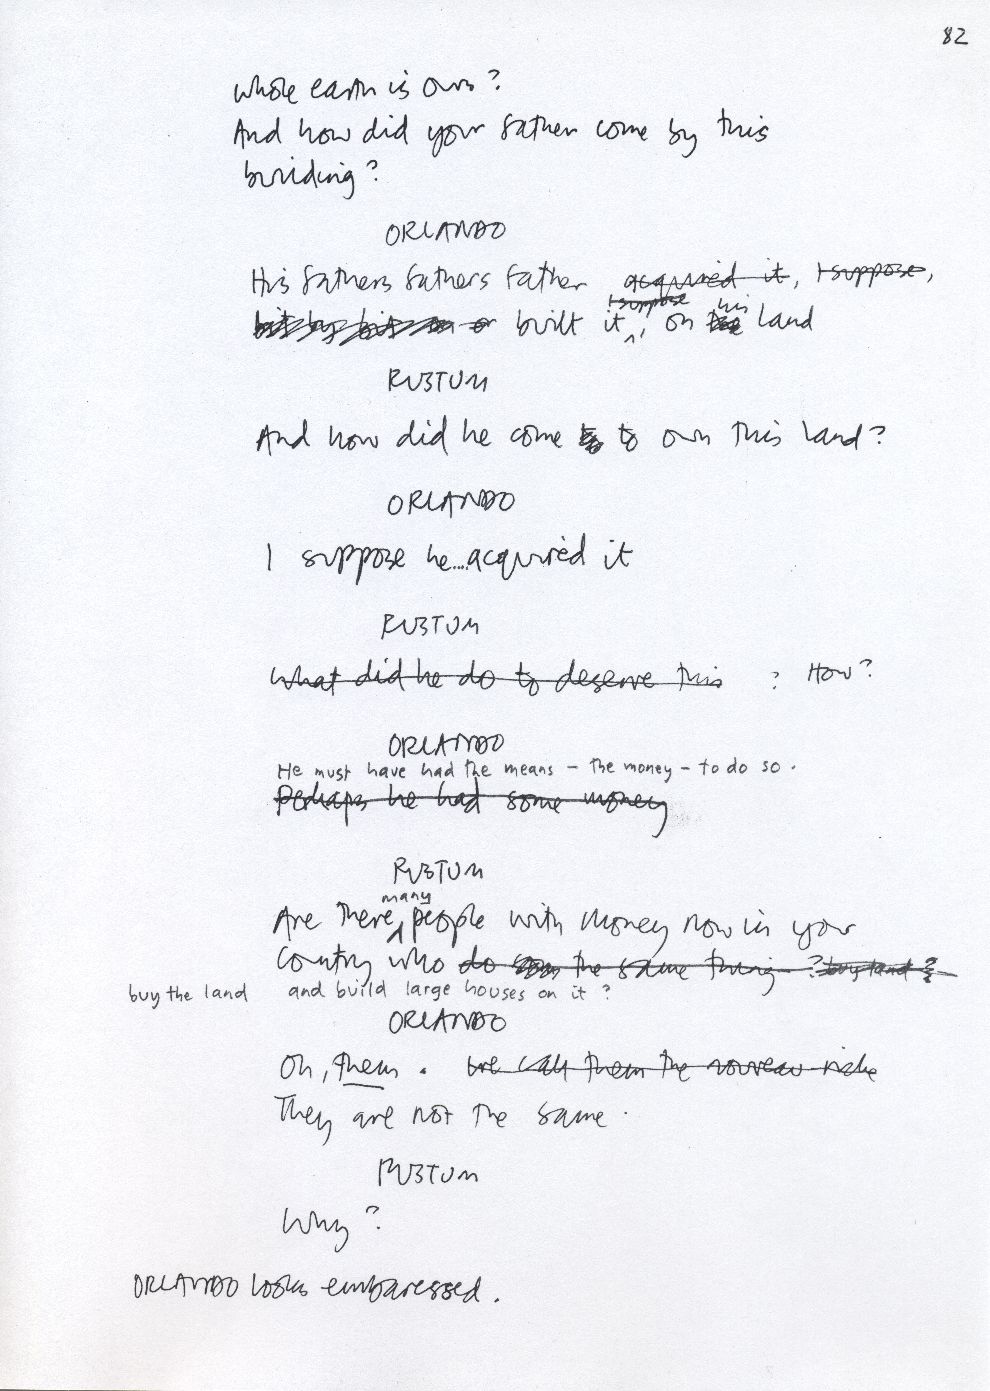 82
whole earth is ours?
And how did your father come by this
building?
ORLANDO
His fathers fathers father acquired it, I suppose,
I suppose his
bit by bit on or built it, on the land
RUSTUM
And how did he come to to own this land?
ORLANDO
I suppose he...acquired it
RUSTUM
What did he do to deserve this ? How?
ORLANDO
He must have had the means - the money - to do so.
Perhaps he had some money
RUSTUM
many
Are there people with money now in your
country who do the same thing ? buy land ?
buy the land and build large houses on it ?
ORLANDO
Oh, them. We call them the nouveau riche
They are not the same.
RUSTUM
Why?
ORLANDO looks embaressed.